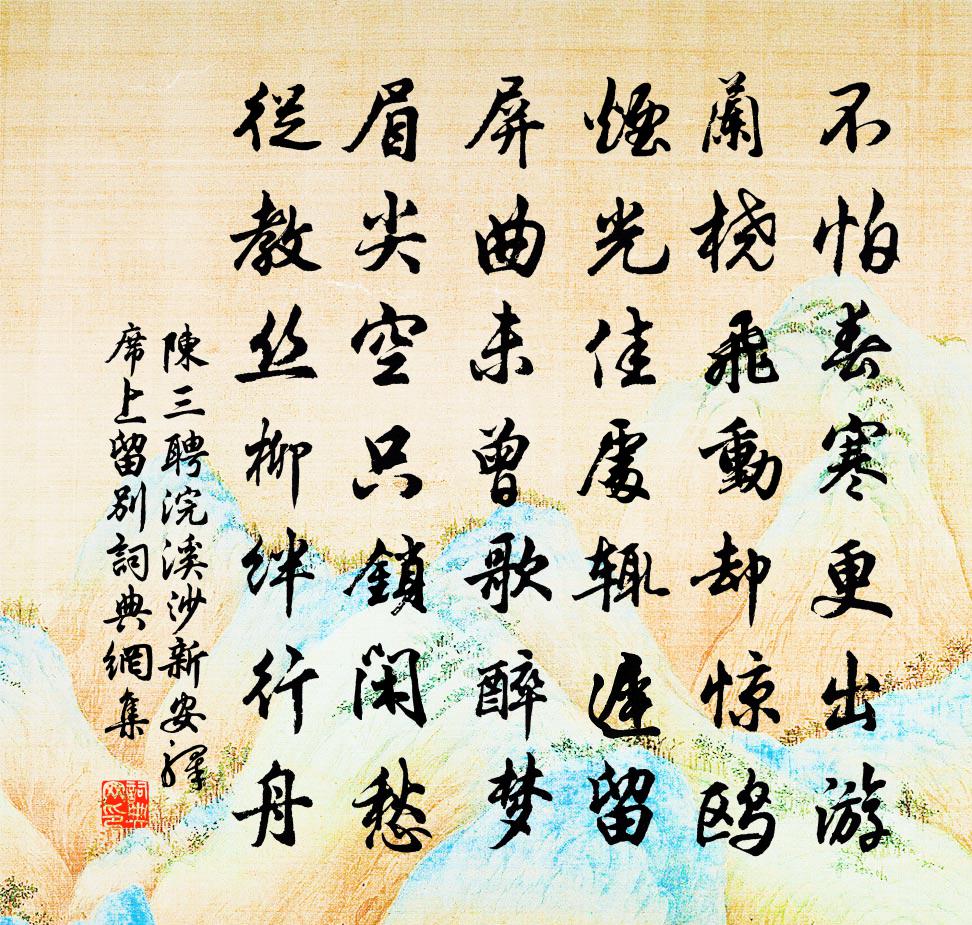 不怕春寒更出游
蘭桡飛動却惊鸥
煙光佳處辄遲留
屏曲未曾歌醉梦
眉尖空只鎖閑愁
從教丝柳绊行舟
陳三聘浣溪沙新安驛
席上留别詞典網集